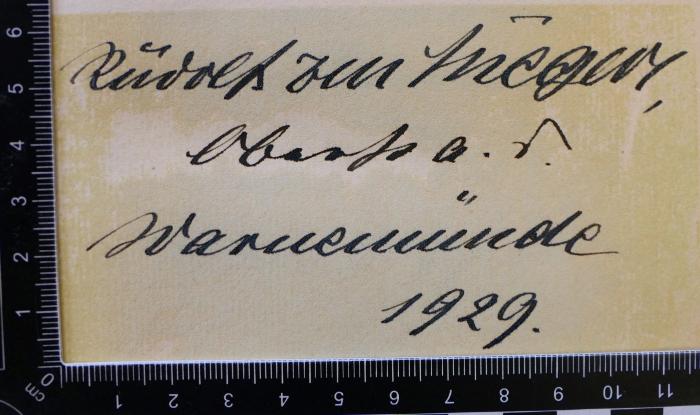 Rudolf zur Megede,
Oberst a. D.
Warnemünde
1929.
6
5
4
3
2
1
0
cm
1 2 3 4 5 6 7 8 9 10 11